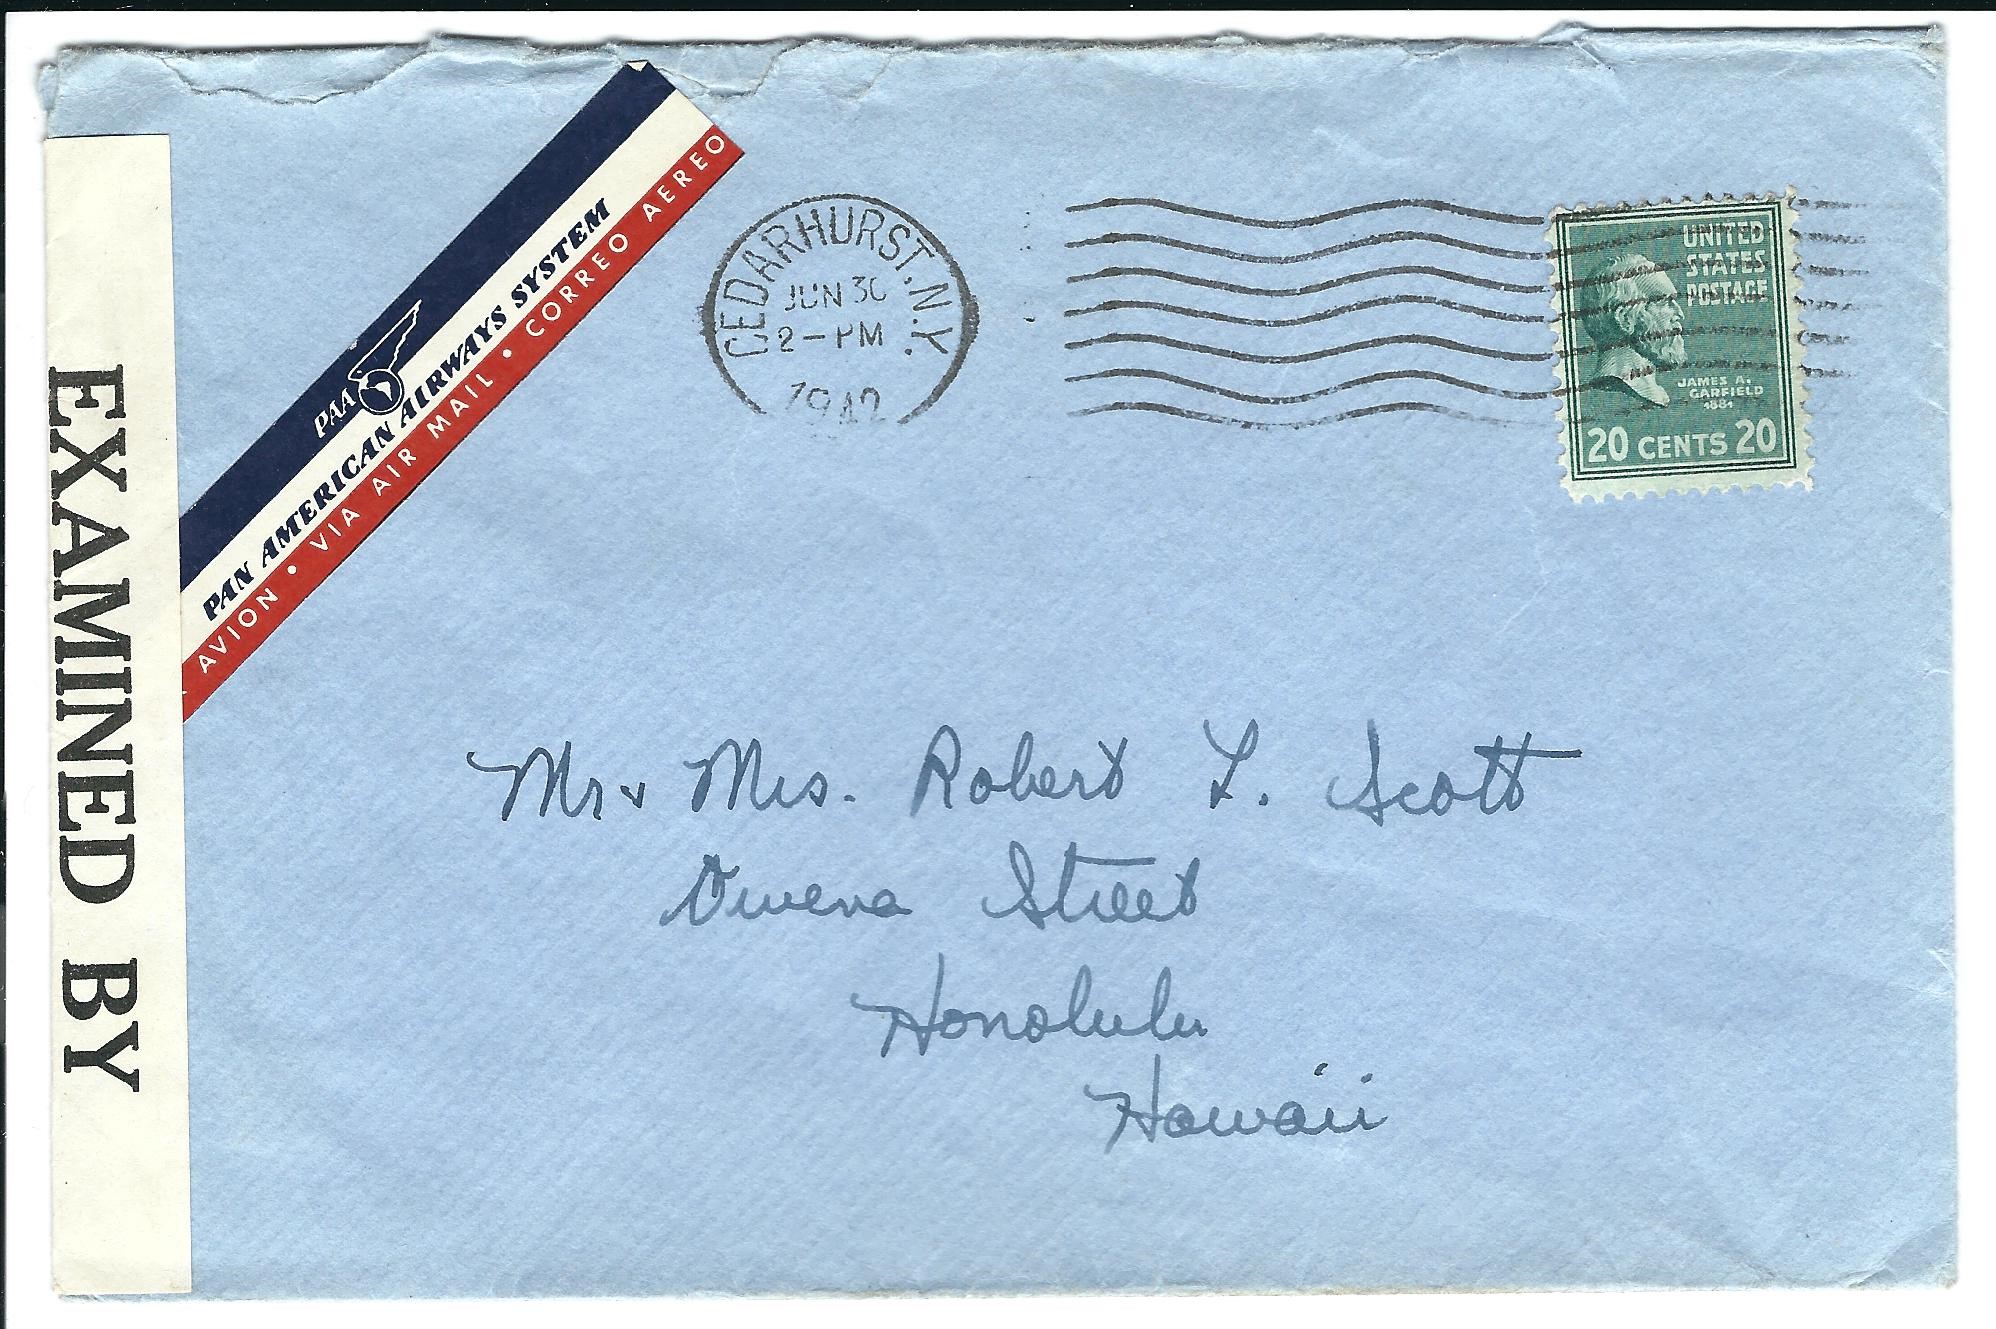 EXAMINED BY
PAA
PAN AMERICAN AIRWAYS SYSTEM
AVION • VIA AIR MAIL • CORREO AEREO
CEDARHURST, N.Y.
JUN 30
2-PM
1942
UNITED
STATES
POSTAGE
JAMES A.
GARFIELD
1881
20 CENTS 20
Mr & Mrs. Robert L. Scott
Owena Street
Honolulu
Hawaii